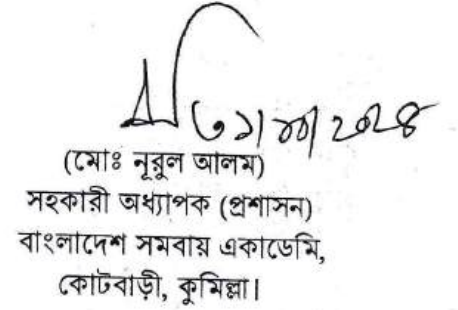 ৩১/০৩/২০২৪
(মোঃ নূরুল আলম)
সহকারী অধ্যাপক (প্রশাসন)
বাংলাদেশ সমবায় একাডেমি,
কোটবাড়ী, কুমিল্লা।